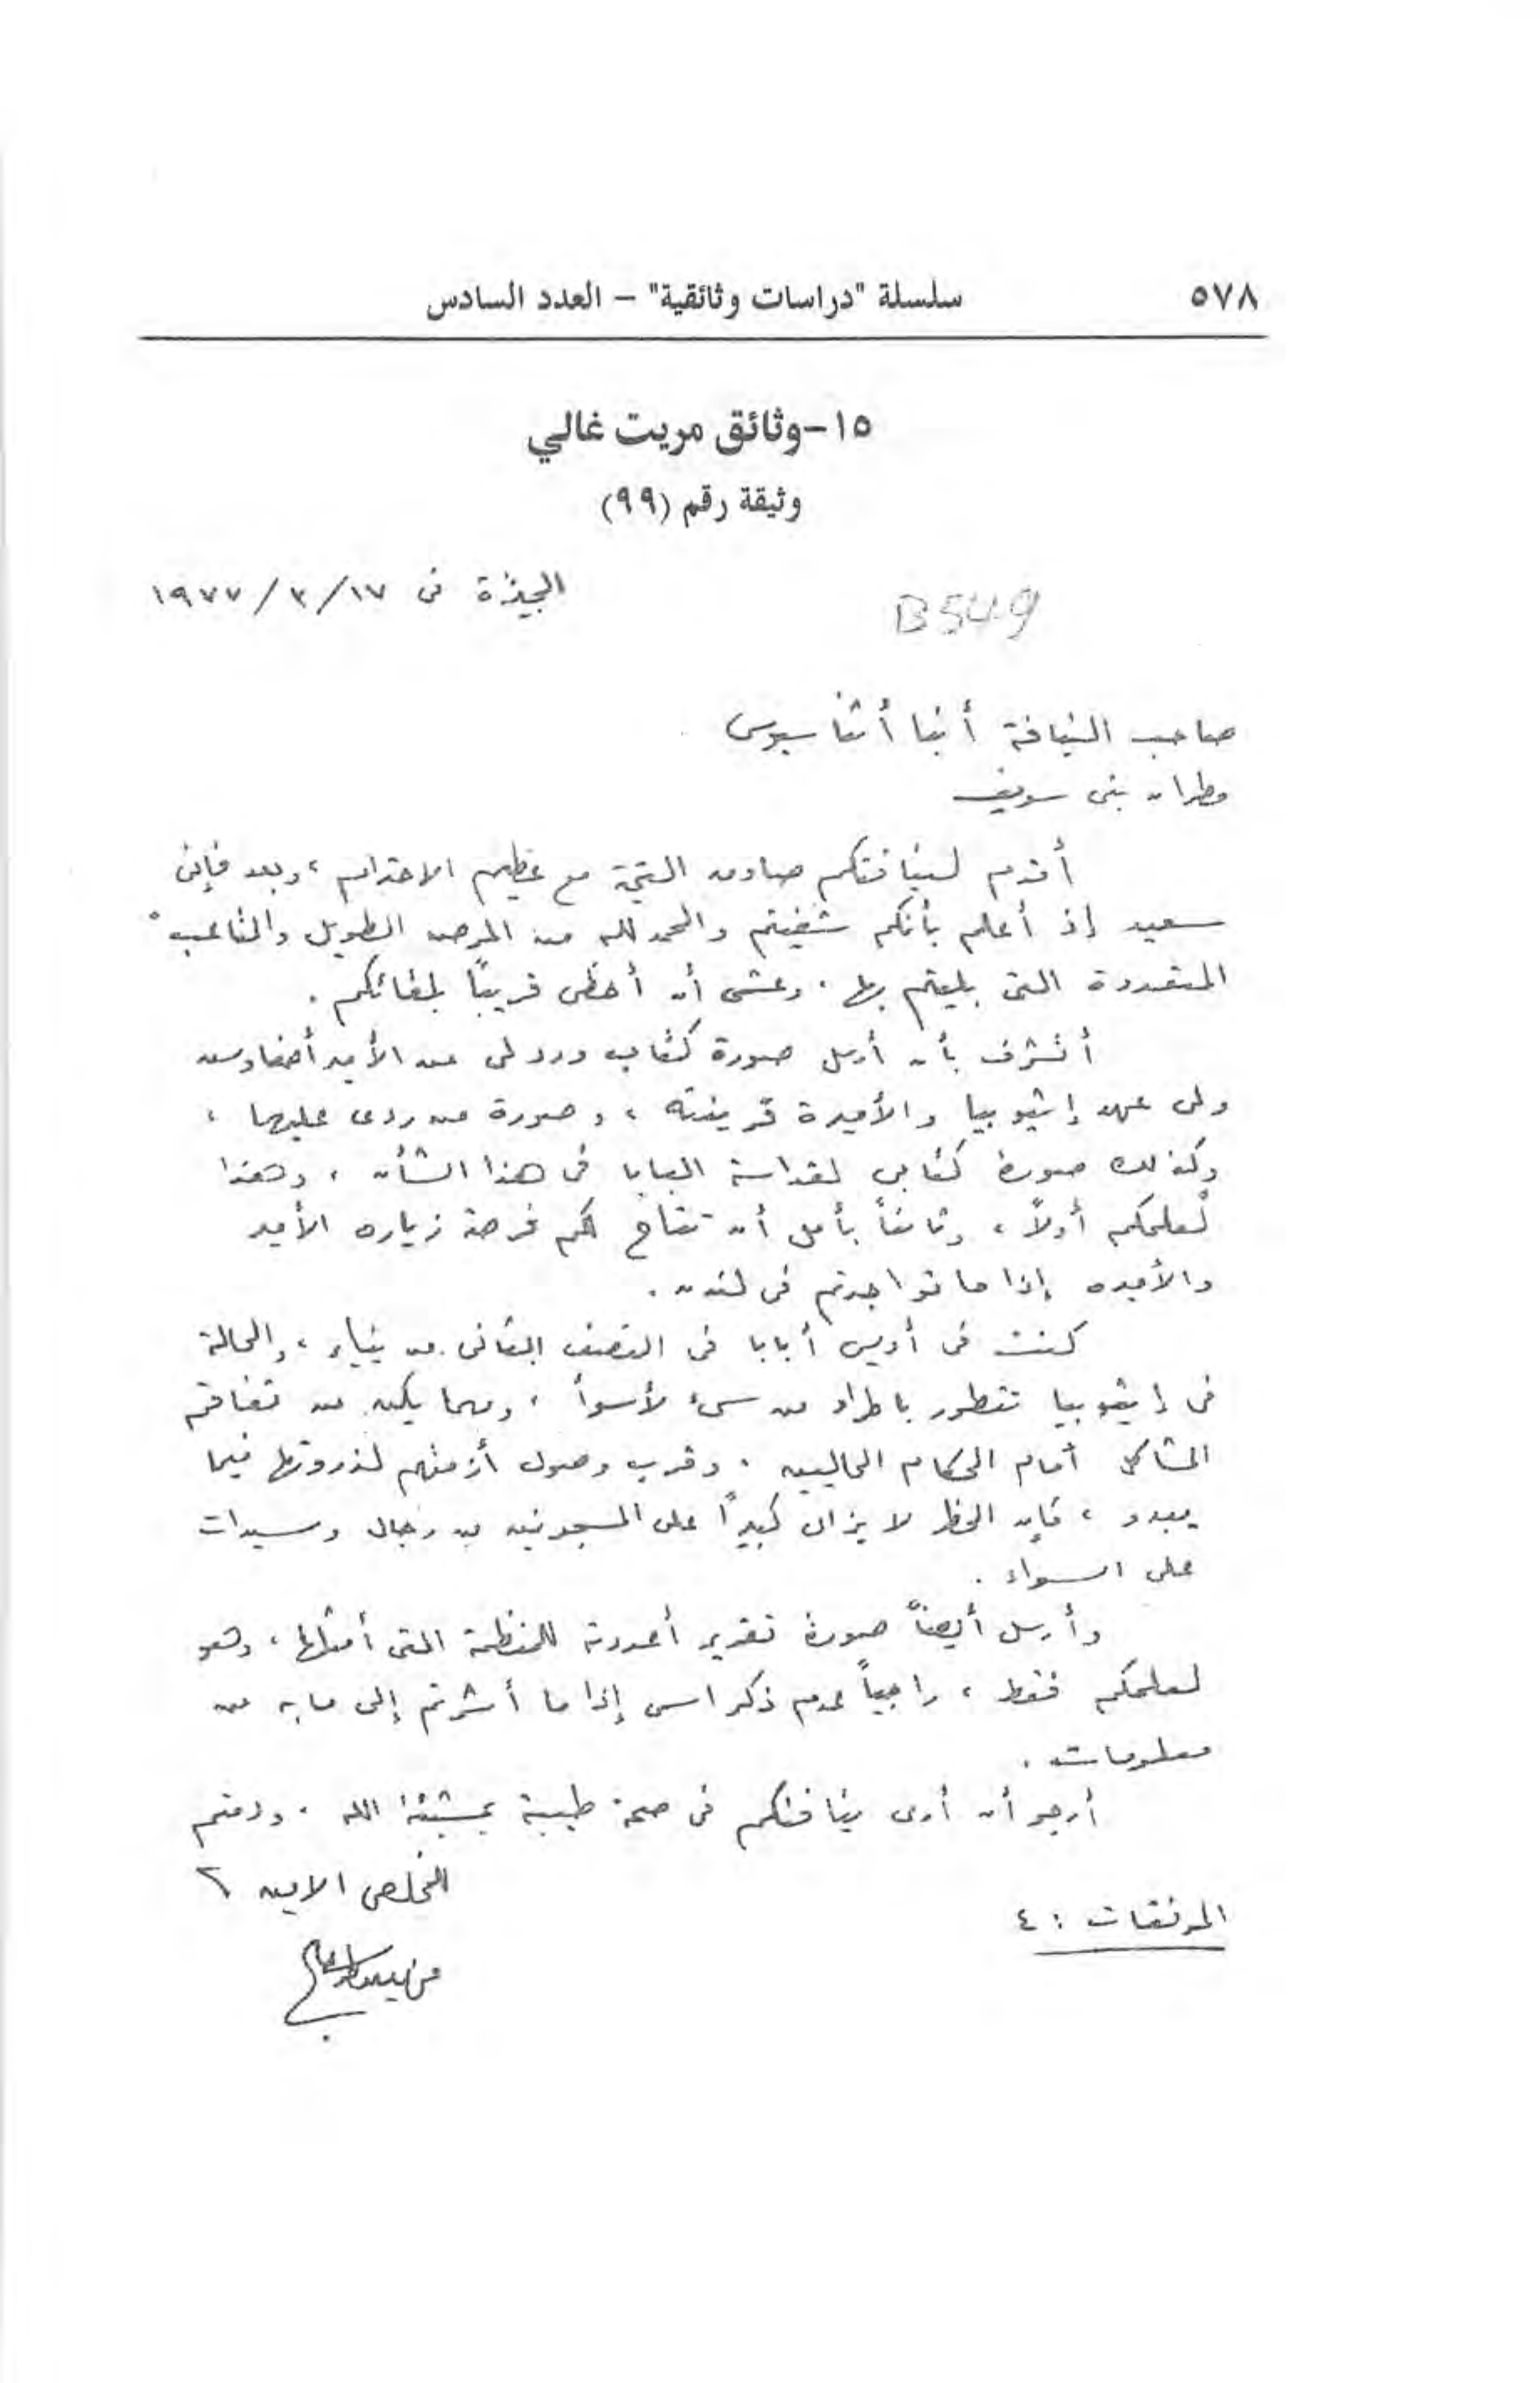 ٥٧٨ سلسلة "دراسات وثائقية" – العدد السادس
١٥-وثائق مريت غالي
وثيقة رقم (٩٩)
الجيزة فى ١٧/٣/١٩٧٧
B549
صاحب النيافة أنبا أثناسيوس
مطران بنى سويف
أقدم لنيافتكم صادق التحية مع عظيم الاحترام ، وبعد فإنى
سعيد إذ أعلم بأنكم شفيتم والحمد لله من المرض الطويل والمتاعب
المتعددة التى بليتم بها . وعسى أن أحظى قريباً بلقائكم .
أتشرف بأن أرسل صورة كتاب ورد لى من الأمير أصفاوسن
ولى عهد إثيوبيا والأميرة قرينته ، وصورة من ردى عليهما ،
وكذلك صورة كتابى لقداسة البابا فى هذا الشأن ، وهذا
لعلمكم أولاً ، وثانياً بأمل أن تتاح لكم فرصة زياره الأمير
والأميره إذا ما تواجدتم فى لندن .
كنت فى أديس أبابا فى النصف الثانى من يناير ، والحالة
فى إثيوبيا تتطور باطراد من سىء لأسوأ ، ومهما يكن من تفاقم
المشاكل أمام الحكام الحاليين . وقرب وصول أزمتهم لذروتها فيما
يبدو ، فإن الخطر لا يزال كبيراً على المسجونين من رجال وسيدات
على السواء .
وأرسل أيضاً صورة تقرير أعددته للمنظمة التى أمثلها ، وهو
لعلمكم فقط ، راجياً عدم ذكر اسمى إذا ما أشرتم إلى ما به من
معلومات .
أرجو أن أرى نيافتكم فى صحة طيبة بمشيئة الله . ودمتم
المخلص الامين
المرفقات : ٤